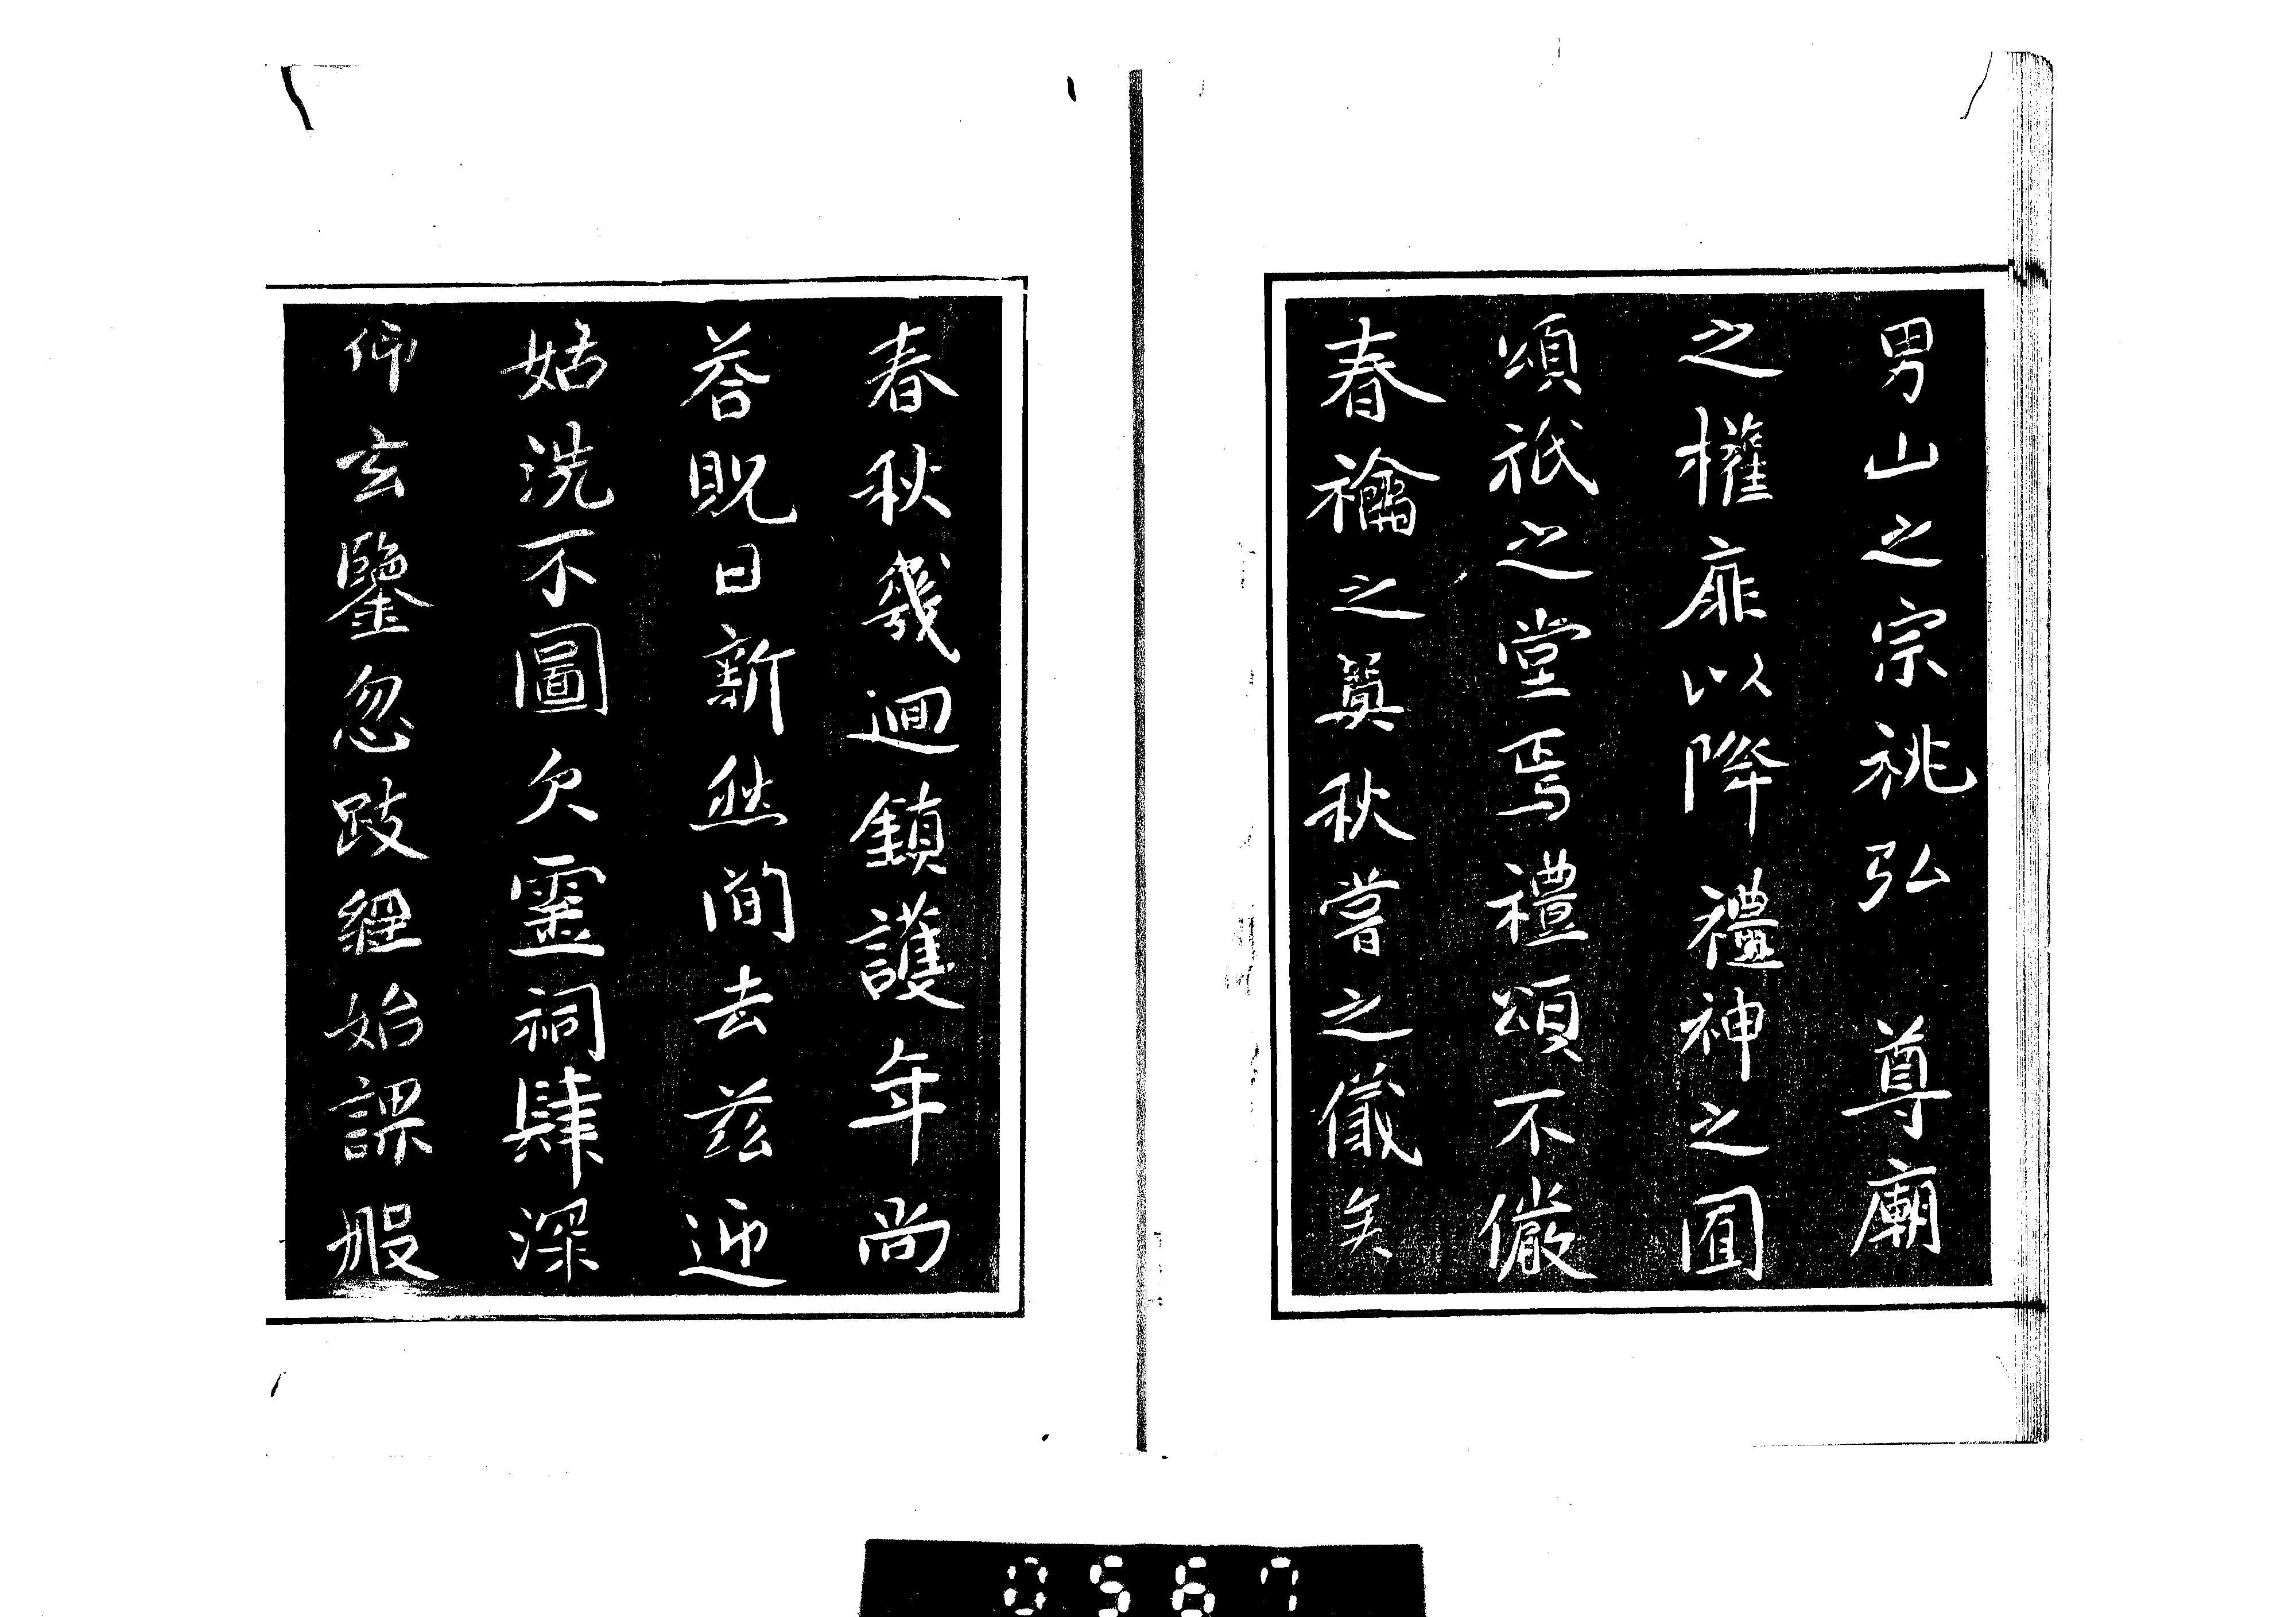 男山之宗祧弘　尊廟
之權扉以降禮神之囿
頌祇之堂焉禮頌不儼
春禴之奠秋嘗之儀矣
春秋幾迴鎮護年尚
荅貺日新然間去茲迎
姑洗不圖欠靈祠肆深
仰玄鑒忽跂經始課般
0567